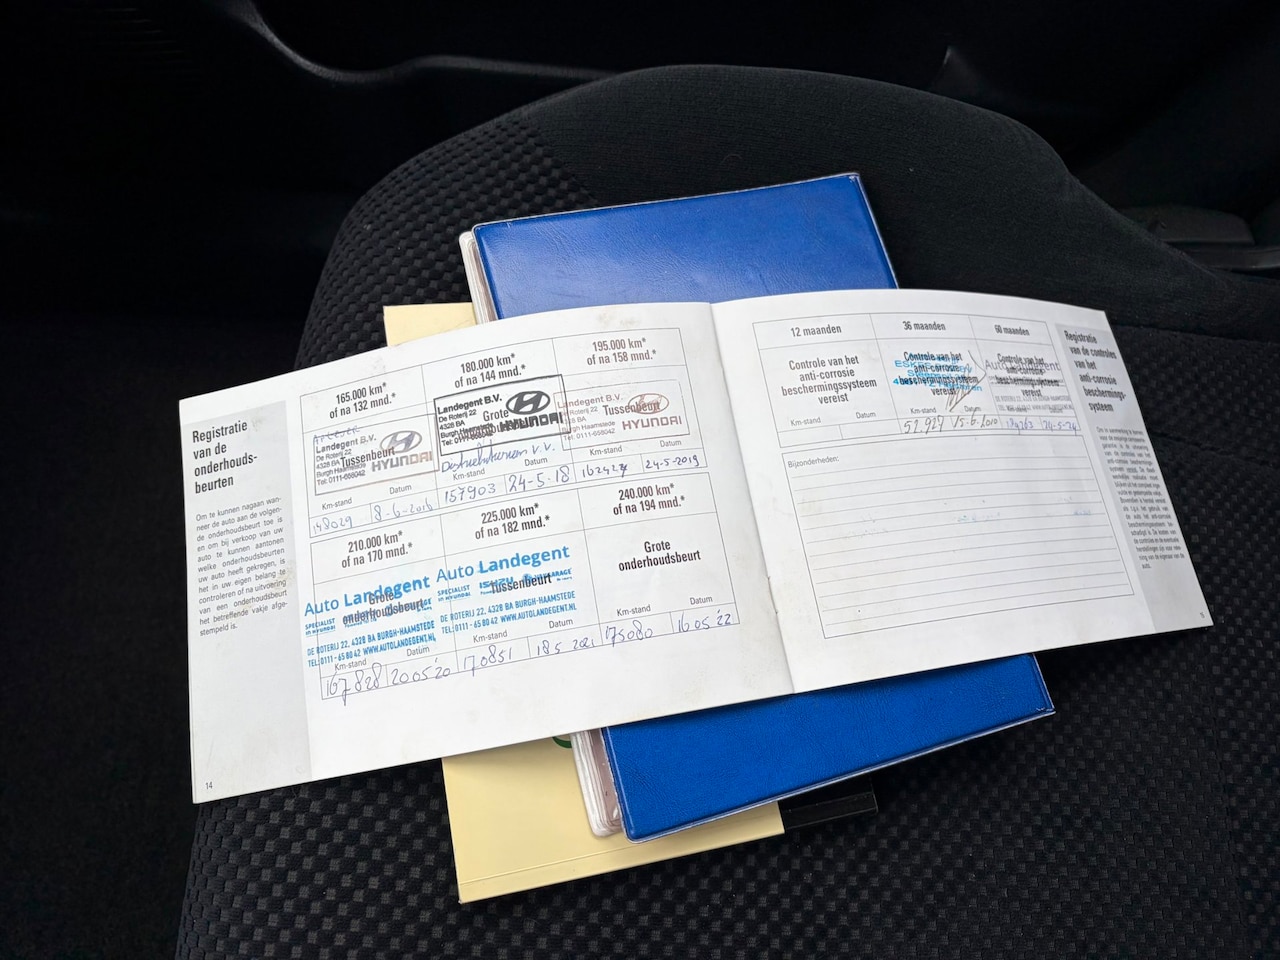 Registratie
van de
onderhouds-
beurten
Om te kunnen nagaan wan-
neer de auto aan de volgen-
de onderhoudsbeurt toe is
en om bij verkoop van uw
auto te kunnen aantonen
welke onderhoudsbeurten
uw auto heeft gekregen, is
het in uw eigen belang te
controleren of na uitvoering
van een onderhoudsbeurt
het betreffende vakje afge-
stempeld is.
14
165.000 km*
of na 132 mnd.*
Landegent B.V.
De Roterij 22
4328 BA
Burgh Haamstede
Tel: 0111-658042
Tussenbeurt
HYUNDAI
Km-stand Datum
148029 8-6-2016
180.000 km*
of na 144 mnd.*
Landegent B.V.
De Roterij 22
4328 BA
Burgh Haamstede
Tel: 0111-658042
Grote
HYUNDAI
Km-stand Datum
157903 24-5-18
195.000 km*
of na 158 mnd.*
Landegent B.V.
De Roterij 22
4328 BA
Burgh Haamstede
Tel: 0111-658042
Tussenbeurt
HYUNDAI
Km-stand Datum
162427 24-5-2019
210.000 km*
of na 170 mnd.*
Auto Landegent
Grote
onderhoudsbeurt
SPECIALIST
in HYUNDAI
DE ROTERIJ 22, 4328 BA BURGH-HAAMSTEDE
TEL: 0111 - 65 80 42 WWW.AUTOLANDEGENT.NL
Km-stand Datum
167828 20 05 '20
225.000 km*
of na 182 mnd.*
Auto Landegent
Tussenbeurt
SPECIALIST
in HYUNDAI
DE ROTERIJ 22, 4328 BA BURGH-HAAMSTEDE
TEL: 0111 - 65 80 42 WWW.AUTOLANDEGENT.NL
Km-stand Datum
170851 18 5 2021
240.000 km*
of na 194 mnd.*
Grote
onderhoudsbeurt
Km-stand Datum
175080 16 05 '22
12 maanden
Controle van het
anti-corrosie
beschermingssysteem
vereist
Km-stand Datum
36 maanden
Controle van het
anti-corrosie
beschermingssysteem
vereist
Km-stand Datum
52.927 15-6-2010
60 maanden
Controle van het
anti-corrosie
beschermingssysteem
Auto Landegent
Km-stand Datum
Bijzonderheden:
Registratie
van de controles
van het
anti-corrosie
beschermings-
systeem